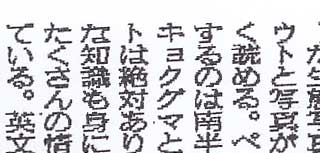 ウトと写真が
く読める。ペ
するのは南半
キョクグマと
トは絶対あり
な知識も身に
たくさんの情
ている。英文